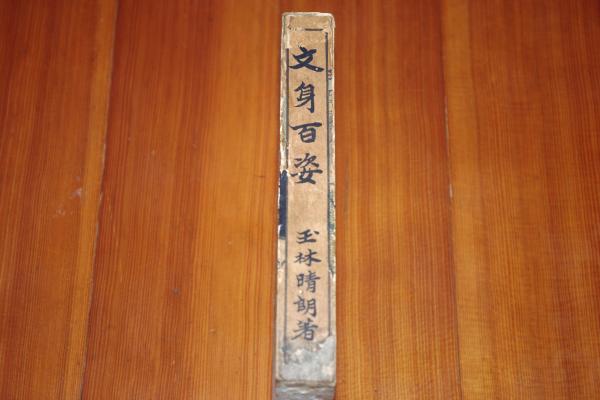 文身百姿
玉林晴朗著